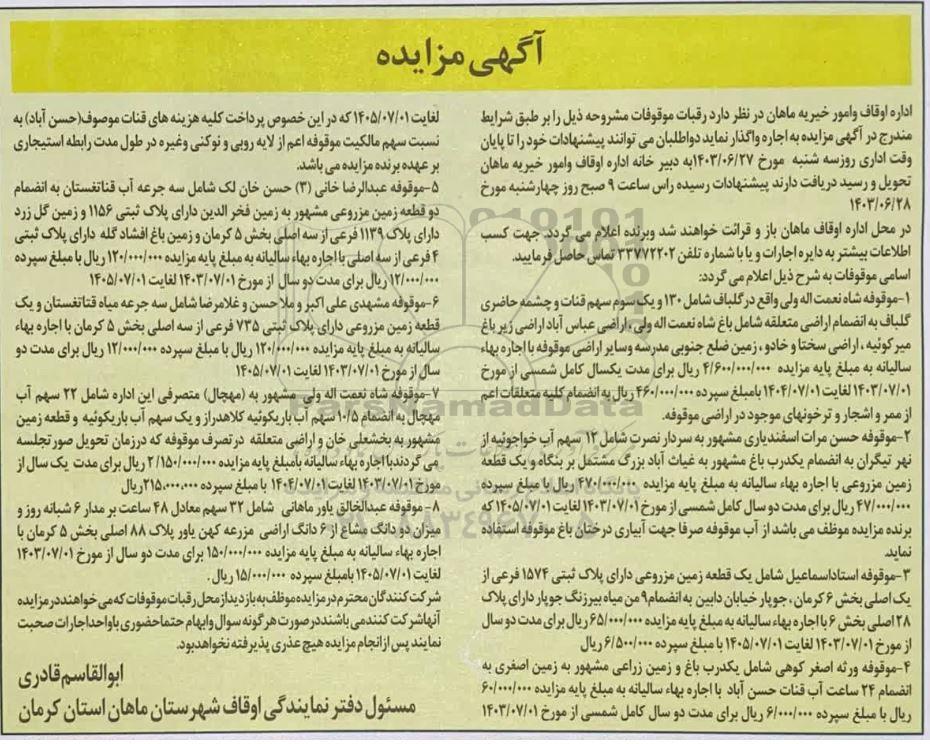 آگهی مزایده
اداره اوقاف وامور خیریه ماهان در نظر دارد رقبات موقوفات مشروحه ذیل را بر طبق شرایط
مندرج در آگهی مزایده به اجاره واگذار نماید دواطلبان می توانند پیشنهادات خود را تا پایان
وقت اداری روزسه شنبه مورخ ۱۴۰۳/۰۶/۲۷به دبیر خانه اداره اوقاف وامور خیریه ماهان
تحویل و رسید دریافت دارند پیشنهادات رسیده راس ساعت ۹ صبح روز چهارشنبه مورخ
۱۴۰۳/۰۶/۲۸
در محل اداره اوقاف ماهان باز و قرائت خواهند شد وبرنده اعلام می گردد. جهت کسب
اطلاعات بیشتر به دایره اجارات و یا با شماره تلفن ۳۳۷۷۲۲۰۲ تماس حاصل فرمایید.
اسامی موقوفات به شرح ذیل اعلام می گردد:
۱-موقوفه شاه نعمت اله ولی واقع در گلباف شامل ۱۳۰ و یک سوم سهم قنات و چشمه حاضری
گلباف به انضمام اراضی متعلقه شامل باغ شاه نعمت اله ولی ، اراضی عباس آباد اراضی زیر باغ
میرکوئیه ، اراضی سختا و خادو ، زمین ضلع جنوبی مدرسه وسایر اراضی موقوفه با اجاره بهاء
سالیانه به مبلغ پایه مزایده ۴/۶۰۰/۰۰۰/۰۰۰ ریال برای مدت یکسال کامل شمسی از مورخ
۱۴۰۳/۰۷/۰۱ لغایت ۱۴۰۴/۰۷/۰۱ بامبلغ سپرده ۴۶۰/۰۰۰/۰۰۰ ریال به انضمام کلیه متعلقات اعم
از ممر و اشجار و ترخونهای موجود در اراضی موقوفه.
۲-موقوفه حسن مرات اسفندیاری مشهور به سردار نصرت شامل ۱۲ سهم آب خواجوئیه از
نهر تیگران به انضمام یکدرب باغ مشهور به غیاث آباد بزرگ مشتمل بر بنگاه و یک قطعه
زمین مزروعی با اجاره بهاء سالیانه به مبلغ پایه مزایده ۴۷۰/۰۰۰/۰۰۰ ریال با مبلغ سپرده
۴۷/۰۰۰/۰۰۰ ریال برای مدت دو سال کامل شمسی از مورخ ۱۴۰۳/۰۷/۰۱ لغایت ۱۴۰۵/۰۷/۰۱ که
برنده مزایده موظف می باشد از آب موقوفه صرفا جهت آبیاری درختان باغ موقوفه استفاده
نماید.
۳-موقوفه استاداسماعیل شامل یک قطعه زمین مزروعی دارای پلاک ثبتی ۱۵۷۴ فرعی از
یک اصلی بخش ۶ کرمان ، جوپار خیابان دابین به انضمام۹ من میاه بیرزنگ جوپار دارای پلاک
۲۸ اصلی بخش ۶ با اجاره بهاء سالیانه به مبلغ پایه مزایده ۶۵/۰۰۰/۰۰۰ ریال برای مدت دو سال
از مورخ ۱۴۰۳/۰۷/۰۱ لغایت ۱۴۰۵/۰۷/۰۱ با مبلغ سپرده ۶/۵۰۰/۰۰۰ ریال
۴-موقوفه ورثه اصغر کوهی شامل یکدرب باغ و زمین زراعی مشهور به زمین اصغری به
انضمام ۲۴ ساعت آب قنات حسن آباد با اجاره بهاء سالیانه به مبلغ پایه مزایده ۶۰/۰۰۰/۰۰۰
ریال با مبلغ سپرده ۶/۰۰۰/۰۰۰ ریال برای مدت دو سال کامل شمسی از مورخ ۱۴۰۳/۰۷/۰۱
لغایت ۱۴۰۵/۰۷/۰۱ که در این خصوص پرداخت کلیه هزینه های قنات موصوف(حسن آباد) به
نسبت سهم مالکیت موقوفه اعم از لایه روبی و نوکنی وغیره در طول مدت رابطه استیجاری
بر عهده برنده مزایده می باشد.
۵-موقوفه عبدالرضا خانی (۳) حسن خان لک شامل سه جرعه آب قناتغستان به انضمام
دو قطعه زمین مزروعی مشهور به زمین فخر الدین دارای پلاک ثبتی ۱۱۵۶ و زمین گل زرد
دارای پلاک ۱۱۳۹ فرعی از سه اصلی بخش ۵ کرمان و زمین باغ افشاد گله دارای پلاک ثبتی
۴ فرعی از سه اصلی با اجاره بهاء سالیانه به مبلغ پایه مزایده ۱۲۰/۰۰۰/۰۰۰ ریال با مبلغ سپرده
۱۲/۰۰۰/۰۰۰ ریال برای مدت دو سال از مورخ ۱۴۰۳/۰۷/۰۱ لغایت ۱۴۰۵/۰۷/۰۱
۶-موقوفه مشهدی علی اکبر و ملاحسن و غلامرضا شامل سه جرعه میاه قناتغستان و یک
قطعه زمین مزروعی دارای پلاک ثبتی ۷۳۵ فرعی از سه اصلی بخش ۵ کرمان با اجاره بهاء
سالیانه به مبلغ پایه مزایده ۱۲۰/۰۰۰/۰۰۰ ریال با مبلغ سپرده ۱۲/۰۰۰/۰۰۰ ریال برای مدت دو
سال از مورخ ۱۴۰۳/۰۷/۰۱ لغایت ۱۴۰۵/۰۷/۰۱
۷-موقوفه شاه نعمت اله ولی مشهور به (مهجال) متصرفی این اداره شامل ۲۲ سهم آب
مهجال به انضمام ۱۰/۵ سهم آب باریکوئیه کلاهدراز و یک سهم آب باریکوئیه و قطعه زمین
مشهور به بخشعلی خان و اراضی متعلقه درتصرف موقوفه که درزمان تحویل صورتجلسه
می گرددبا اجاره بهاء سالیانه بامبلغ پایه مزایده ۲/۱۵۰/۰۰۰/۰۰۰ ریال برای مدت یک سال از
مورخ ۱۴۰۳/۰۷/۰۱ لغایت ۱۴۰۴/۰۷/۰۱ با مبلغ سپرده ۲۱۵،۰۰۰،۰۰۰ریال
۸- موقوفه عبدالخالق یاور ماهانی شامل ۳۲ سهم معادل ۴۸ ساعت بر مدار ۶ شبانه روز و
میزان دو دانگ مشاع از ۶ دانگ اراضی مزرعه کهن یاور پلاک ۸۸ اصلی بخش ۵ کرمان با
اجاره بهاء سالیانه به مبلغ پایه مزایده ۱۵۰/۰۰۰/۰۰۰ برای مدت دو سال از مورخ ۱۴۰۳/۰۷/۰۱
لغایت ۱۴۰۵/۰۷/۰۱ بامبلغ سپرده ۱۵/۰۰۰/۰۰۰ ریال .
شرکت کنندگان محترم در مزایده موظف به بازدید از محل رقبات موقوفات که می خواهند در مزایده
آنها شرکت کنند می باشند در صورت هر گونه سوال و ابهام حتما حضوری باواحداجارات صحبت
نمایند پس از انجام مزایده هیچ عذری پذیرفته نخواهدبود.
ابوالقاسم قادری
مسئول دفتر نمایندگی اوقاف شهرستان ماهان استان کرمان